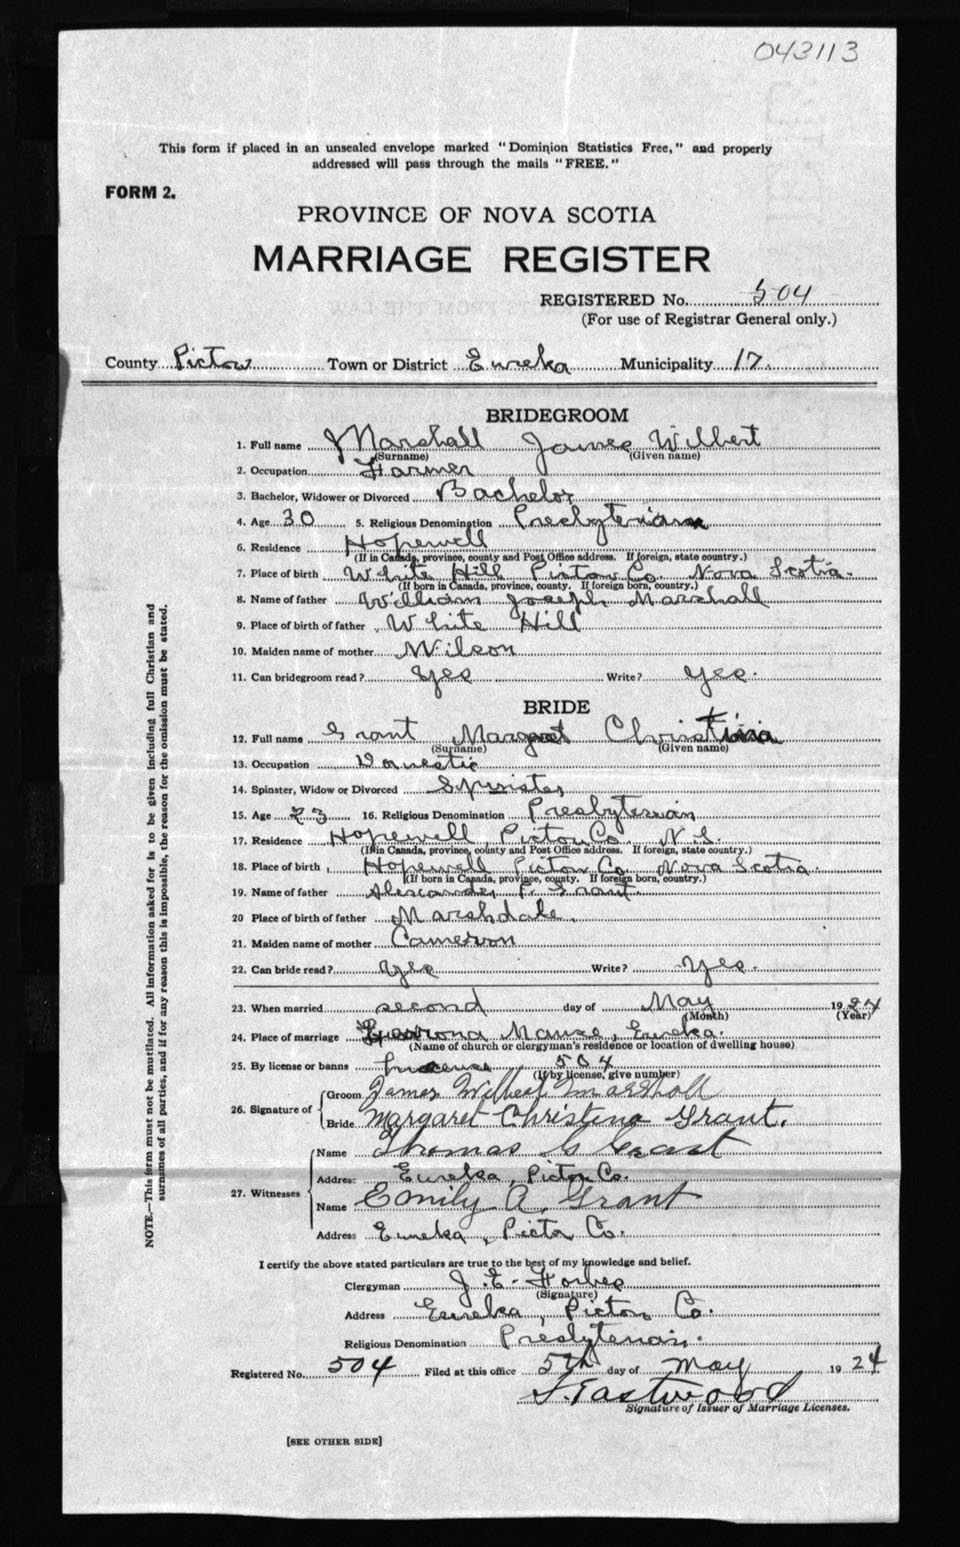 043113
This form if placed in an unsealed envelope marked "Dominion Statistics Free," and properly
addressed will pass through the mails "FREE."
FORM 2.
PROVINCE OF NOVA SCOTIA
MARRIAGE REGISTER
REGISTERED No. 504
(For use of Registrar General only.)
County Pictou Town or District Eureka Municipality 17.
BRIDEGROOM
1. Full name Marshall James Wilbert
(Surname) (Given name)
2. Occupation Farmer
3. Bachelor, Widower or Divorced Bachelor
4. Age 30 5. Religious Denomination Presbyterian
6. Residence Hopewell
(If in Canada, province, county and Post Office address. If foreign, state country.)
7. Place of birth White Hill Pictou Co. Nova Scotia.
(If born in Canada, province, county. If foreign born, country.)
8. Name of father William Joseph Marshall
9. Place of birth of father White Hill
10. Maiden name of mother Wilson
11. Can bridegroom read? Yes Write? Yes.
BRIDE
12. Full name Grant Margaret Christina
(Surname) (Given name)
13. Occupation Domestic
14. Spinster, Widow or Divorced Spinster
15. Age 23 16. Religious Denomination Presbyterian
17. Residence Hopewell, Pictou Co. N.S.
(If in Canada, province, county and Post Office address. If foreign, state country.)
18. Place of birth Hopewell Pictou Co. Nova Scotia.
(If born in Canada, province, county. If foreign born, country.)
19. Name of father Alexander P. Grant
20 Place of birth of father Marshdale.
21. Maiden name of mother Cameron
22. Can bride read? Yes Write? Yes.
23. When married second day of May 1924
(Month) (Year)
24. Place of marriage Manse, Eureka.
(Name of church or clergyman's residence or location of dwelling house)
25. By license or banns License 504
(If by license, give number)
26. Signature of
Groom James Wilbert Marshall
Bride Margaret Christina Grant.
27. Witnesses
Name Thomas G Grant
Address Eureka, Pictou Co.
Name Emily A. Grant
Address Eureka, Pictou Co.
I certify the above stated particulars are true to the best of my knowledge and belief.
Clergyman J. E. Forbes
(Signature)
Address Eureka, Pictou Co.
Religious Denomination Presbyterian.
Registered No. 504 Filed at this office 5th day of May 1924
S. Eastwood
Signature of Issuer of Marriage Licenses.
[SEE OTHER SIDE]
NOTE.—This form must not be mutilated. All information asked for is to be given including full Christian and
surnames of all parties, and if for any reason this is impossible, the reason for the omission must be stated.